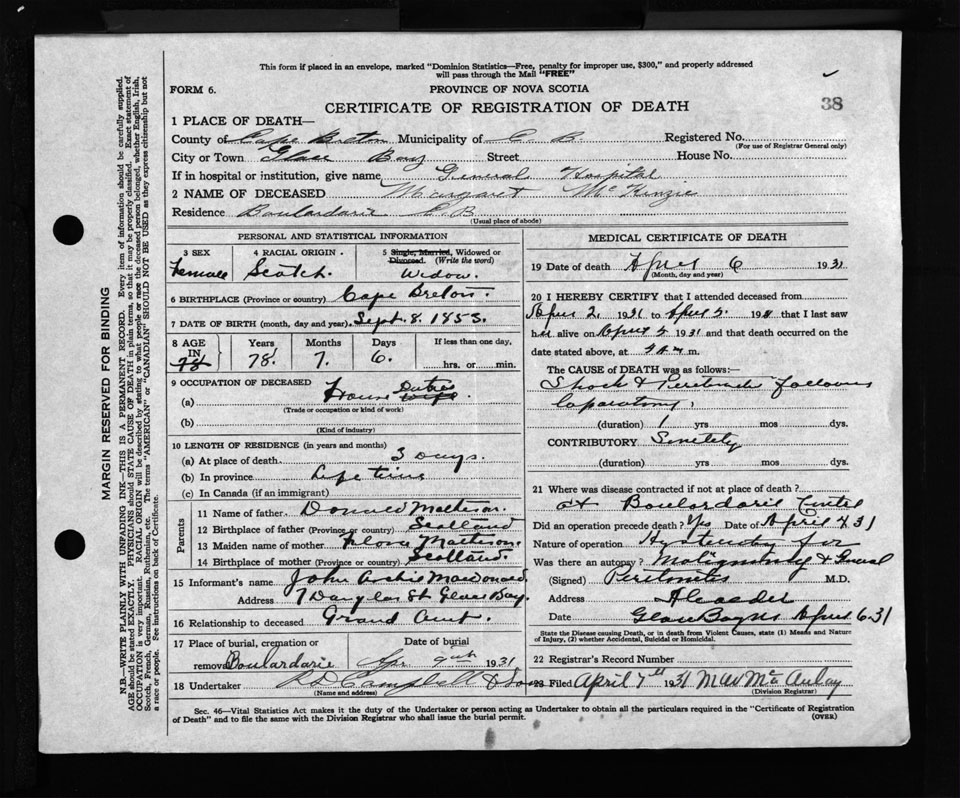 This form if placed in an envelope, marked "Dominion Statistics—Free, penalty for improper use, $300," and properly addressed
will pass through the Mail "FREE"
FORM 6.
PROVINCE OF NOVA SCOTIA
CERTIFICATE OF REGISTRATION OF DEATH
38
1 PLACE OF DEATH—
County of Cape Breton Municipality of C. B. Registered No.
(For use of Registrar General only)
City or Town Glace Bay Street House No.
If in hospital or institution, give name General Hospital
2 NAME OF DECEASED Margaret McKinzie
Residence Boulardarie C.B.
(Usual place of abode)
PERSONAL AND STATISTICAL INFORMATION
3 SEX
Female
4 RACIAL ORIGIN
Scotch.
5 Single, Married, Widowed or
Divorced. (Write the word)
Widow.
6 BIRTHPLACE (Province or country) Cape Breton.
7 DATE OF BIRTH (month, day and year) Sept. 8. 1853.
8 AGE Years Months Days If less than one day,
IN
78 78 7. 6. hrs. or min.
9 OCCUPATION OF DECEASED
Duties
(a) House Wife.
(Trade or occupation or kind of work)
(b)
(Kind of industry)
10 LENGTH OF RESIDENCE (in years and months)
(a) At place of death 3 Days.
(b) In province Life time
(c) In Canada (if an immigrant)
Parents
11 Name of father Donald Matheson.
12 Birthplace of father (Province or country) Scotland
13 Maiden name of mother Flora Matheson.
14 Birthplace of mother (Province or country) Scotland.
15 Informant's name John Archie MacDonald
Address 7 Douglas St Glace Bay.
16 Relationship to deceased Grand Aunt.
17 Place of burial, cremation or Date of burial
removal Boulardarie Apr 9th 1931
18 Undertaker Campbell & Son
(Name and address)
MEDICAL CERTIFICATE OF DEATH
19 Date of death April 6 1931
(Month, day and year)
20 I HEREBY CERTIFY that I attended deceased from
April 2, 1931 to April 5, 193 that I last saw
her alive on April 5 1931 and that death occurred on
the date stated above, at m.
The CAUSE of DEATH was as follows:—
Shock & Peritonitis following
laparatomy,
(duration) 1 yrs mos dys.
CONTRIBUTORY Senility
(duration) yrs mos dys.
21 Where was disease contracted if not at place of death?
at Boulardarie Centre
Did an operation precede death? Yes Date of April 4 31
Nature of operation for
Was there an autopsy? Malignancy & General
(Signed) Peritonitis M.D.
Address
Date Glace Bay NS April 6-31
State the Disease causing Death, or in death from Violent Causes, state (1) Means and Nature
of Injury, (2) whether Accidental, Suicidal or Homicidal.
22 Registrar's Record Number
23 Filed April 7th 1931 McAulay
(Division Registrar)
Sec. 46—Vital Statistics Act makes it the duty of the Undertaker or person acting as Undertaker to obtain all the particulars required in the "Certificate of Registration
of Death" and to file the same with the Division Registrar who shall issue the burial permit.
(OVER)
MARGIN RESERVED FOR BINDING
N.B.—WRITE PLAINLY WITH UNFADING INK—THIS IS A PERMANENT RECORD. Every item of information should be carefully supplied.
AGE should be stated EXACTLY. PHYSICIANS should STATE CAUSE OF DEATH in plain terms, so that it may be properly classified. Exact statement of
OCCUPATION is very important. RACIAL ORIGIN will be described by stating to what people or race the deceased person belonged, whether English, Irish,
Scotch, French, German, Russian, Ruthenian, etc. The terms "AMERICAN" or "CANADIAN" SHOULD NOT BE USED as they express citizenship but not
a race or people. See instructions on back of Certificate.